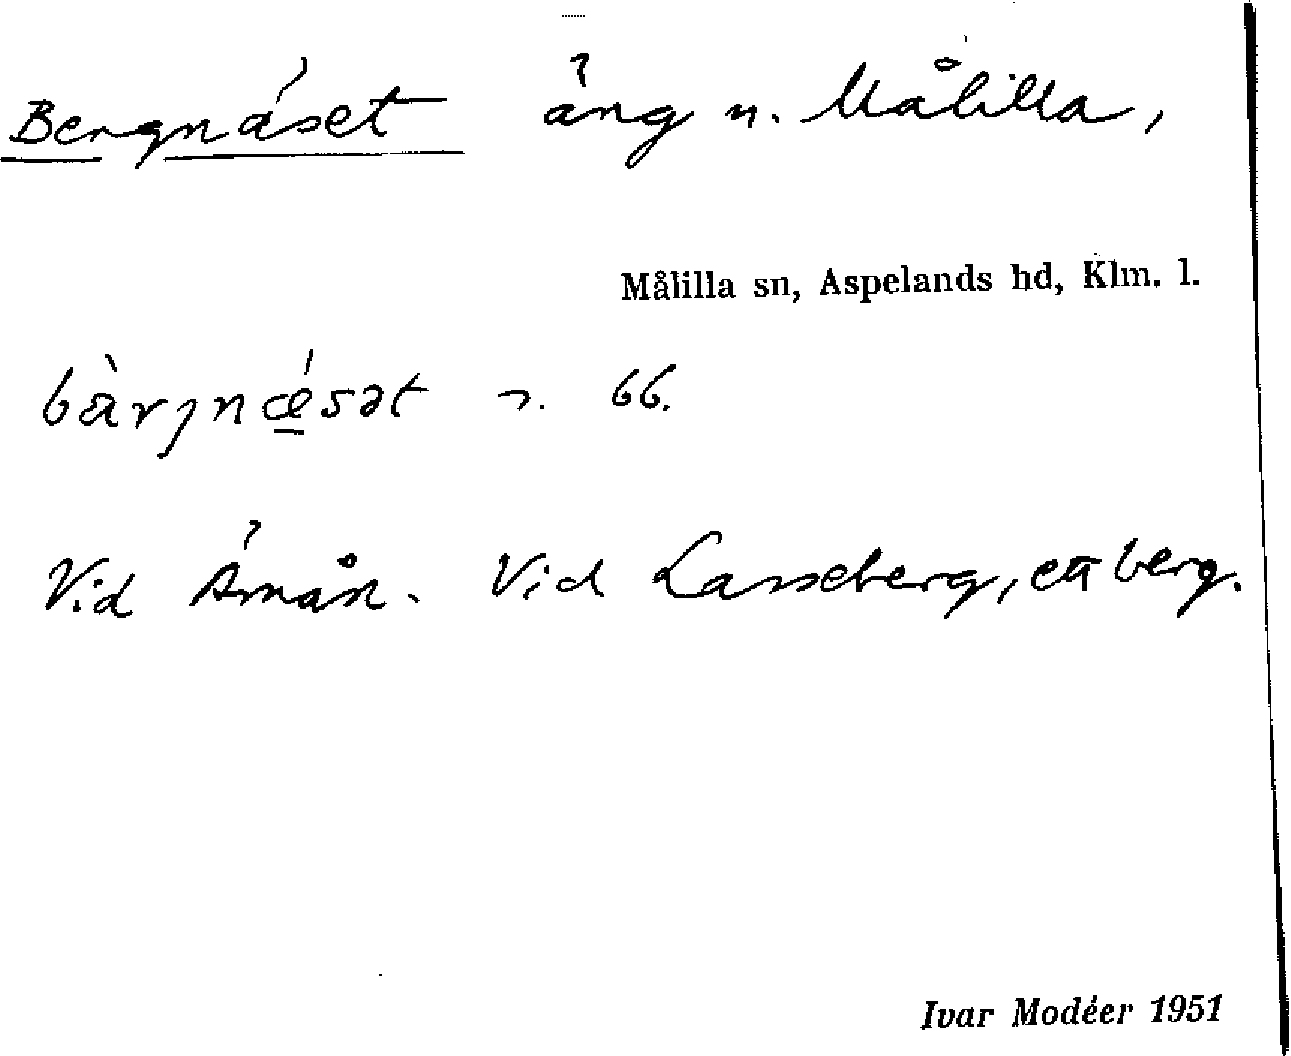 Bergnäset äng n. Målilla,
Målilla sn, Aspelands hd, Klm. l.
bàrjnǽsət n. 66.
Vid Ämån. Vid Lasseberg, ett berg.
Ivar Modéer 1951